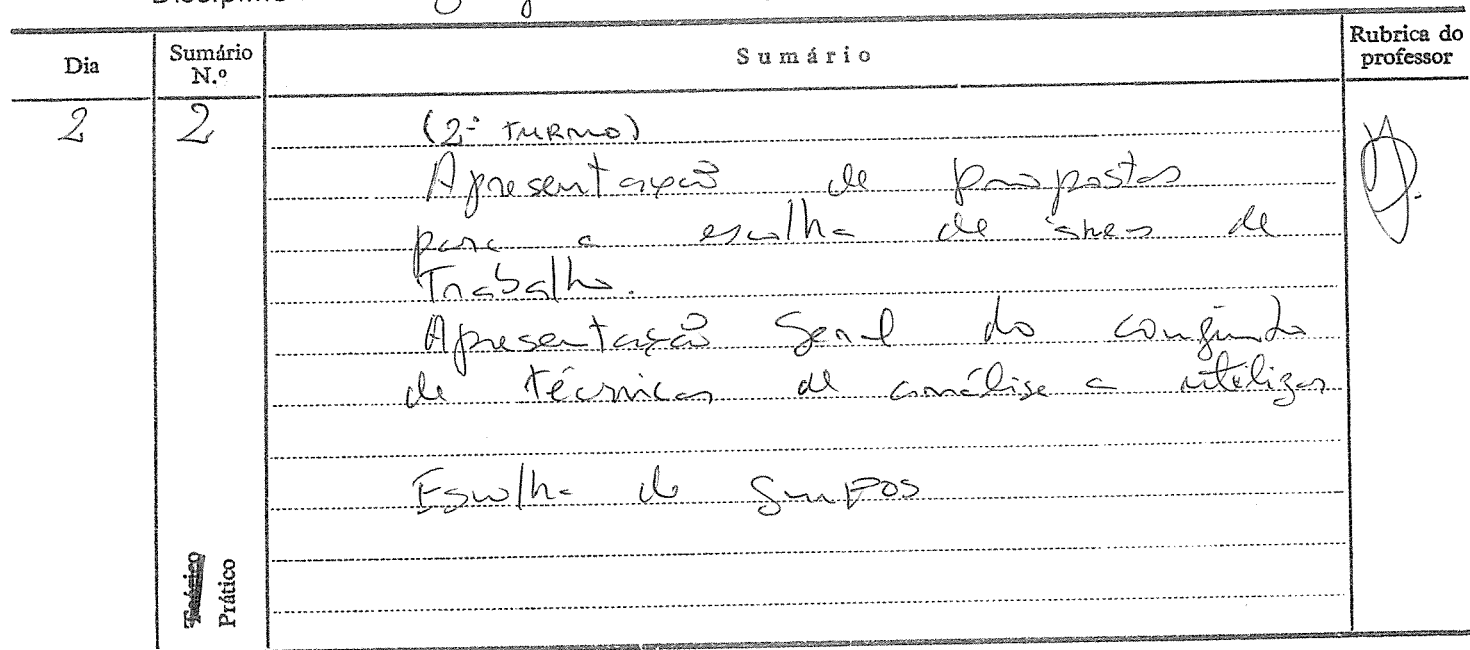 Dia
Sumário N.º
Sumário
Rubrica do professor
2
2
(2º TURNO)
Apresentação de propostas
para a escolha de áreas de
Trabalho.
Apresentação Geral do conjunto
de técnicas de análise a utilizar
Escolha de Grupos
Teórico
Prático